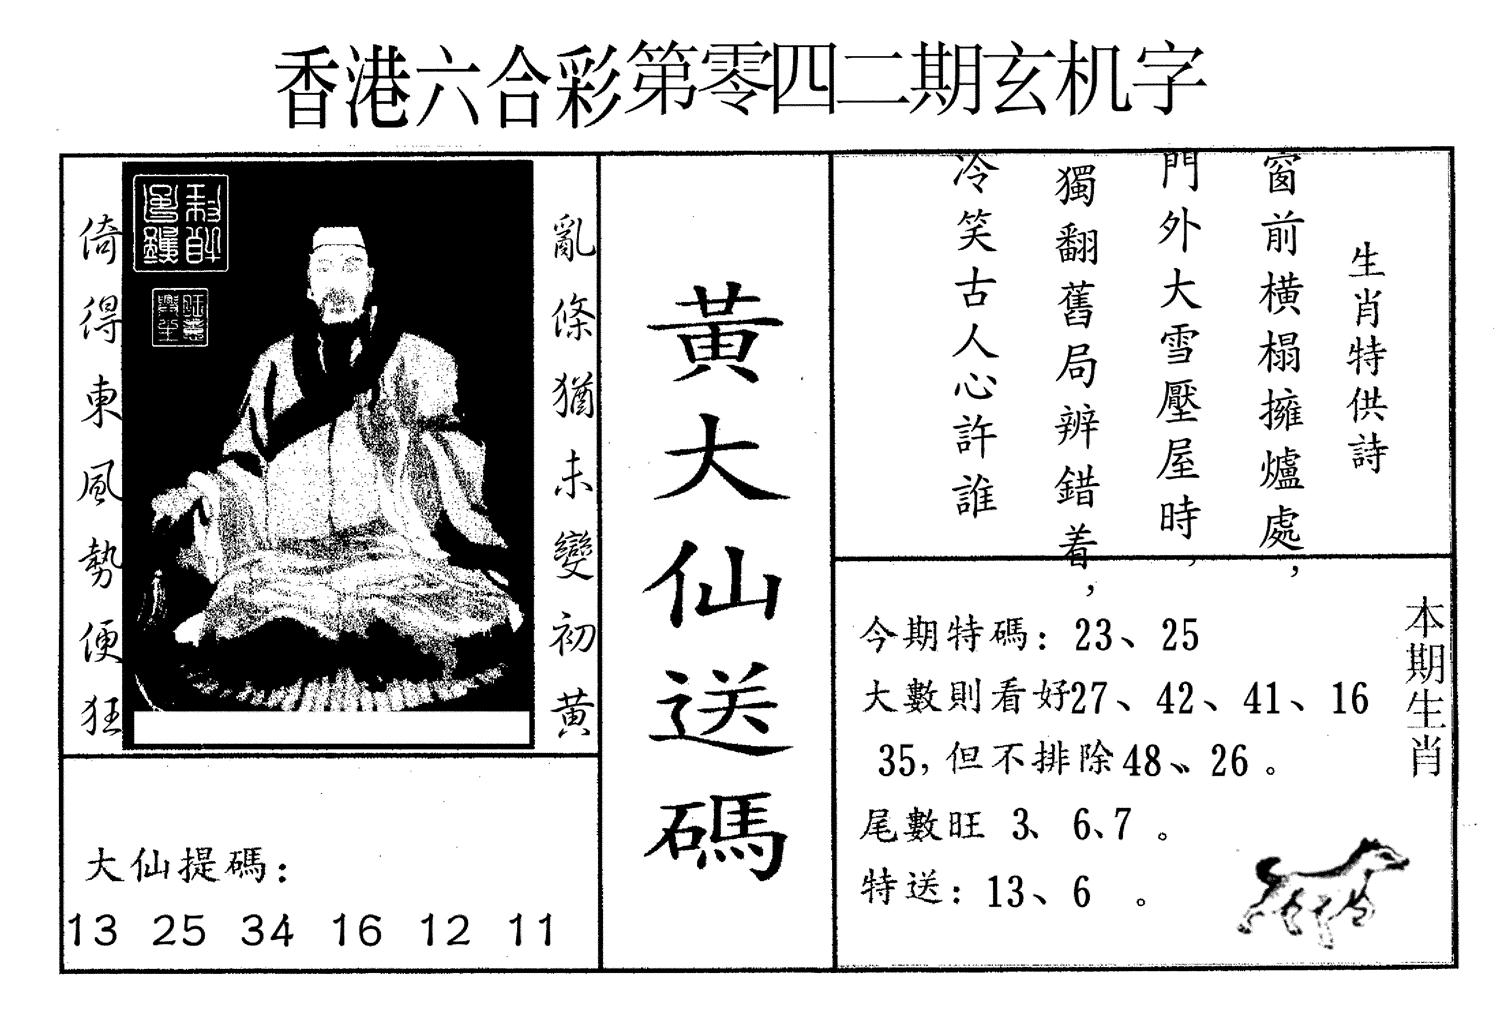 香港六合彩第零四二期玄机字
亂條猶未變初黃
倚得東風勢便狂
大仙提碼：
13 25 34 16 12 11
黃大仙送碼
生肖特供詩
窗前橫榻擁爐處，
門外大雪壓屋時，
獨翻舊局辨錯着，
冷笑古人心許誰
本期生肖
今期特碼：23、25
大數則看好27、42、41、16
35，但不排除48、26。
尾數旺 3、6、7。
特送：13、6 。